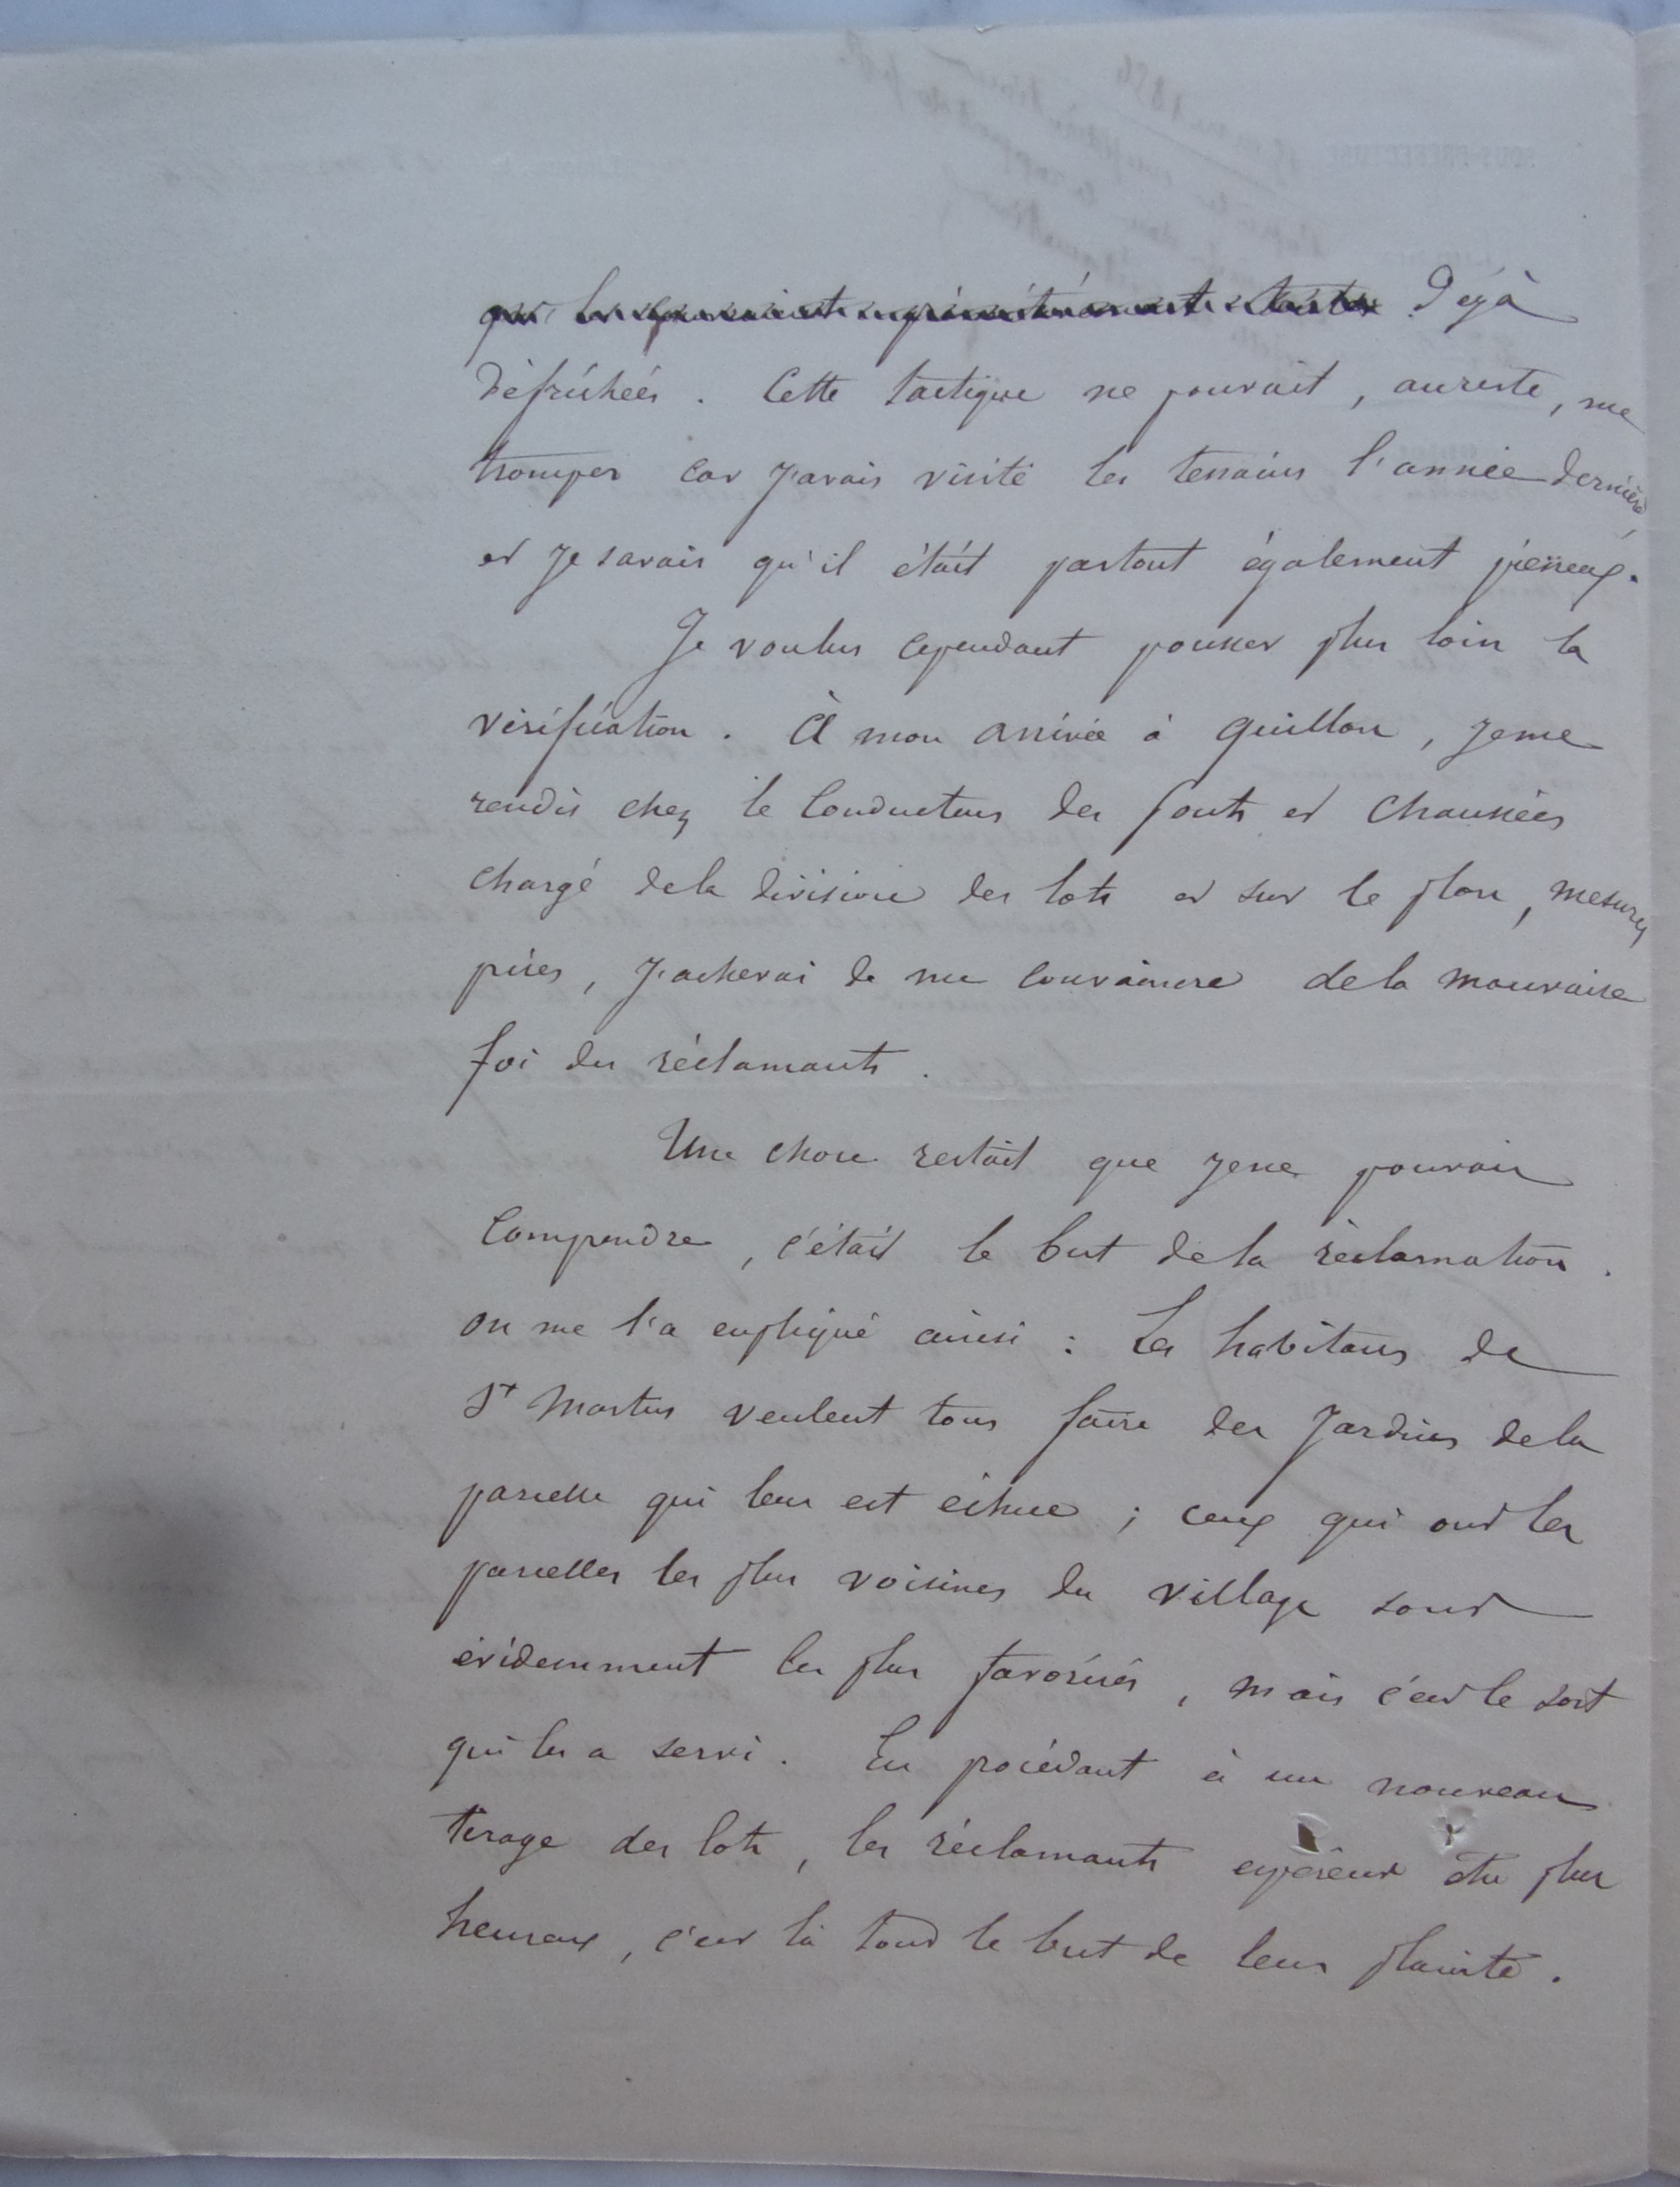 déjà
défrichées. Cette tactique ne pouvait, aureste, me
tromper car j'avais visité les terrains l'année dernière,
et je savais qu'il était partout également pierreux.
Je voulus cependant pousser plus loin la
vérification. À mon arrivée à Guillon, je me
rendis chez le Conducteur des Ponts et Chaussées
chargé de la division des lots et sur le plan, mesures
prises, j'achevai de me convaincre de la mauvaise
foi des réclamants.
Une chose restait que je ne pouvais
Comprendre, c'était le but de la réclamation.
on me l'a expliqué ainsi : Les habitans de
St Martin veulent tous faire des Jardins de la
parcelle qui leur est échue ; ceux qui ont les
parcelles les plus voisines du village sont
évidemment les plus favorisés, mais c'est le sort
qui les a servi. En procédant à un nouveau
tirage des lots, les réclamants espèrent être plus
heureux, c'est là tout le but de leur plainte.